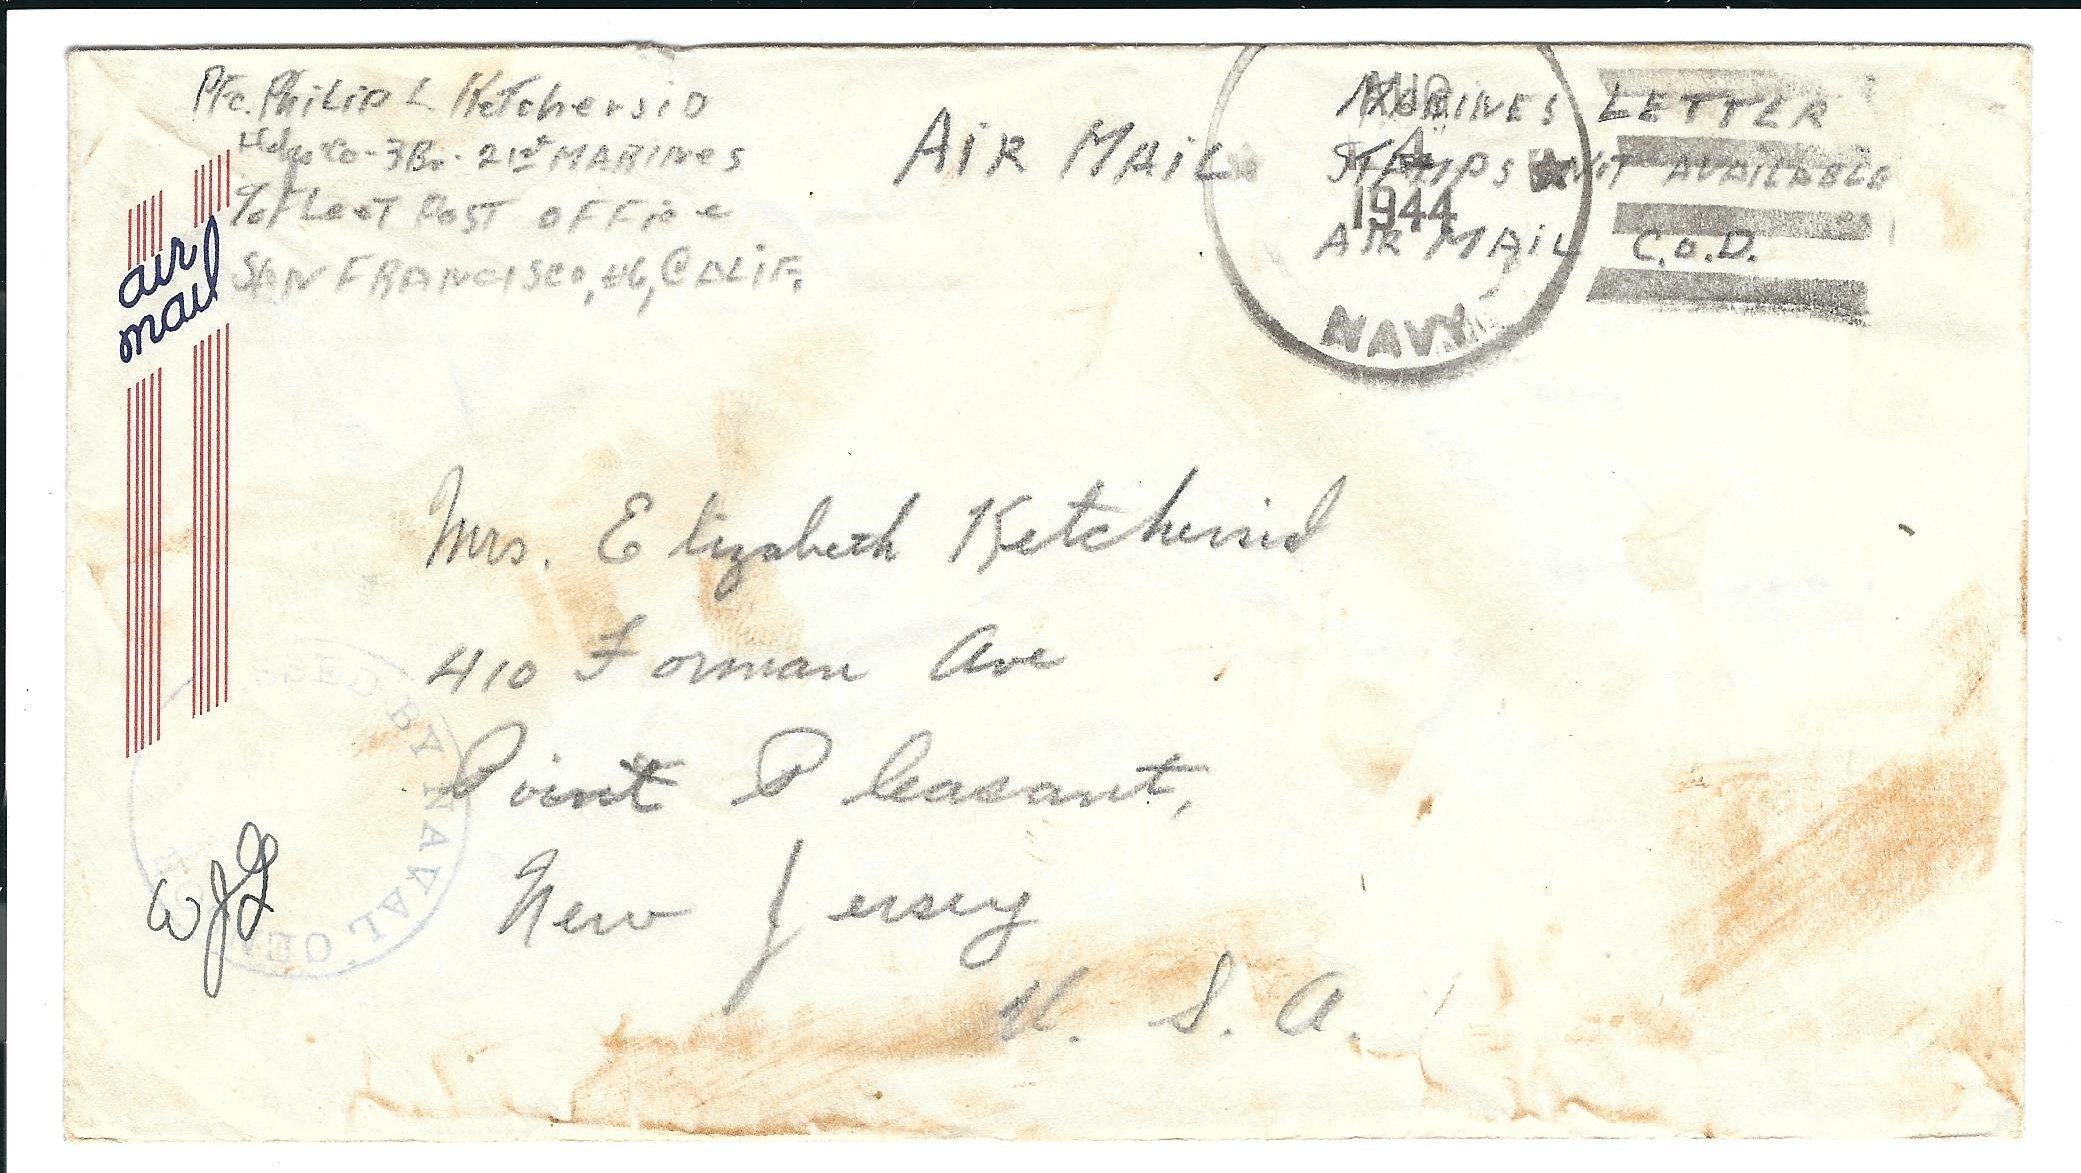 Pfc. Philip L Ketchersid
Hdqs Co - 3 Bn - 21st MARINES
% Fleet Post Office
SAN FRANCISCO, CALIF.
air
mail
AiR MAiL
MARINES LETTER
STAMPS NOT AVAILABLE
AIR MAIL C.O.D.
AUG
1944
NAVY
Mrs. Elizabeth Ketchersid
410 Forman Ave
Point Pleasant,
New Jersey
U. S. A.
BY NAVAL CEN
WJL